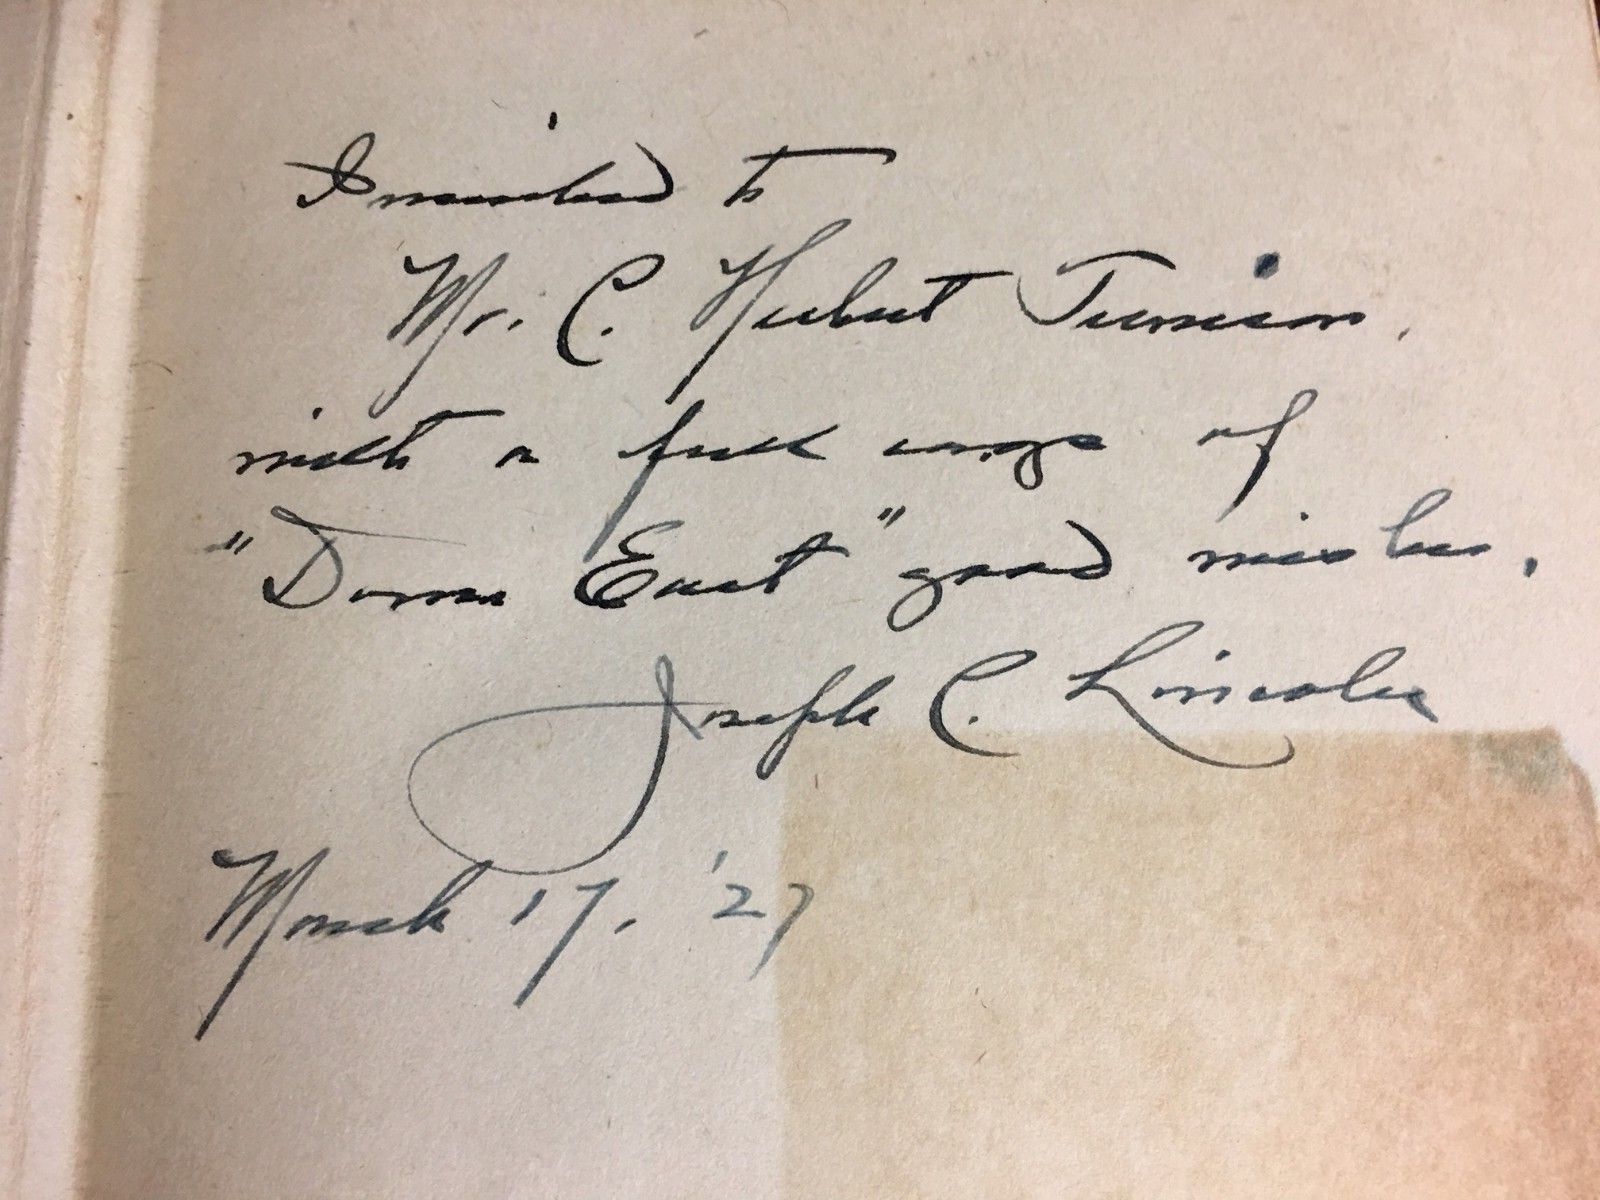 Inscribed to
Mr. C. Herbert
with a full cargo of
"Down East" good wishes.
Joseph C. Lincoln
March 17, '27